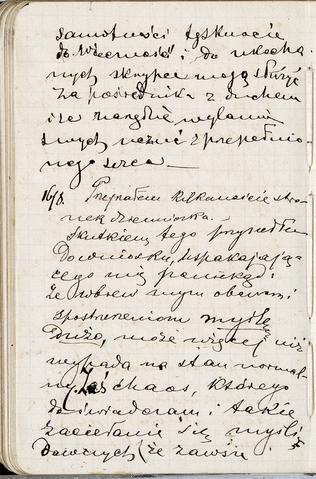 samotności tęsknocie
do wieczności i do ukocha
nych skrypce mają służyć
za pośrednika z duchem
i że narzędzie wylania
swych uczuć z przepełnio-
nego serca —
16/8. Przejrzałem kilkanaście stro
nek dzienniczka. —
Skutkiem tego przyszedłem
do wniosku, uspakajają-
cego mię poniekąd:
że wbrew mym obawom i
spostrzeżeniom myślę
dużo, może więcej niż
wypada na stan normal-
ny. Zaś chaos, którego
doświadczam i takie
zacieranie się myśli
dawnych (że zawsze